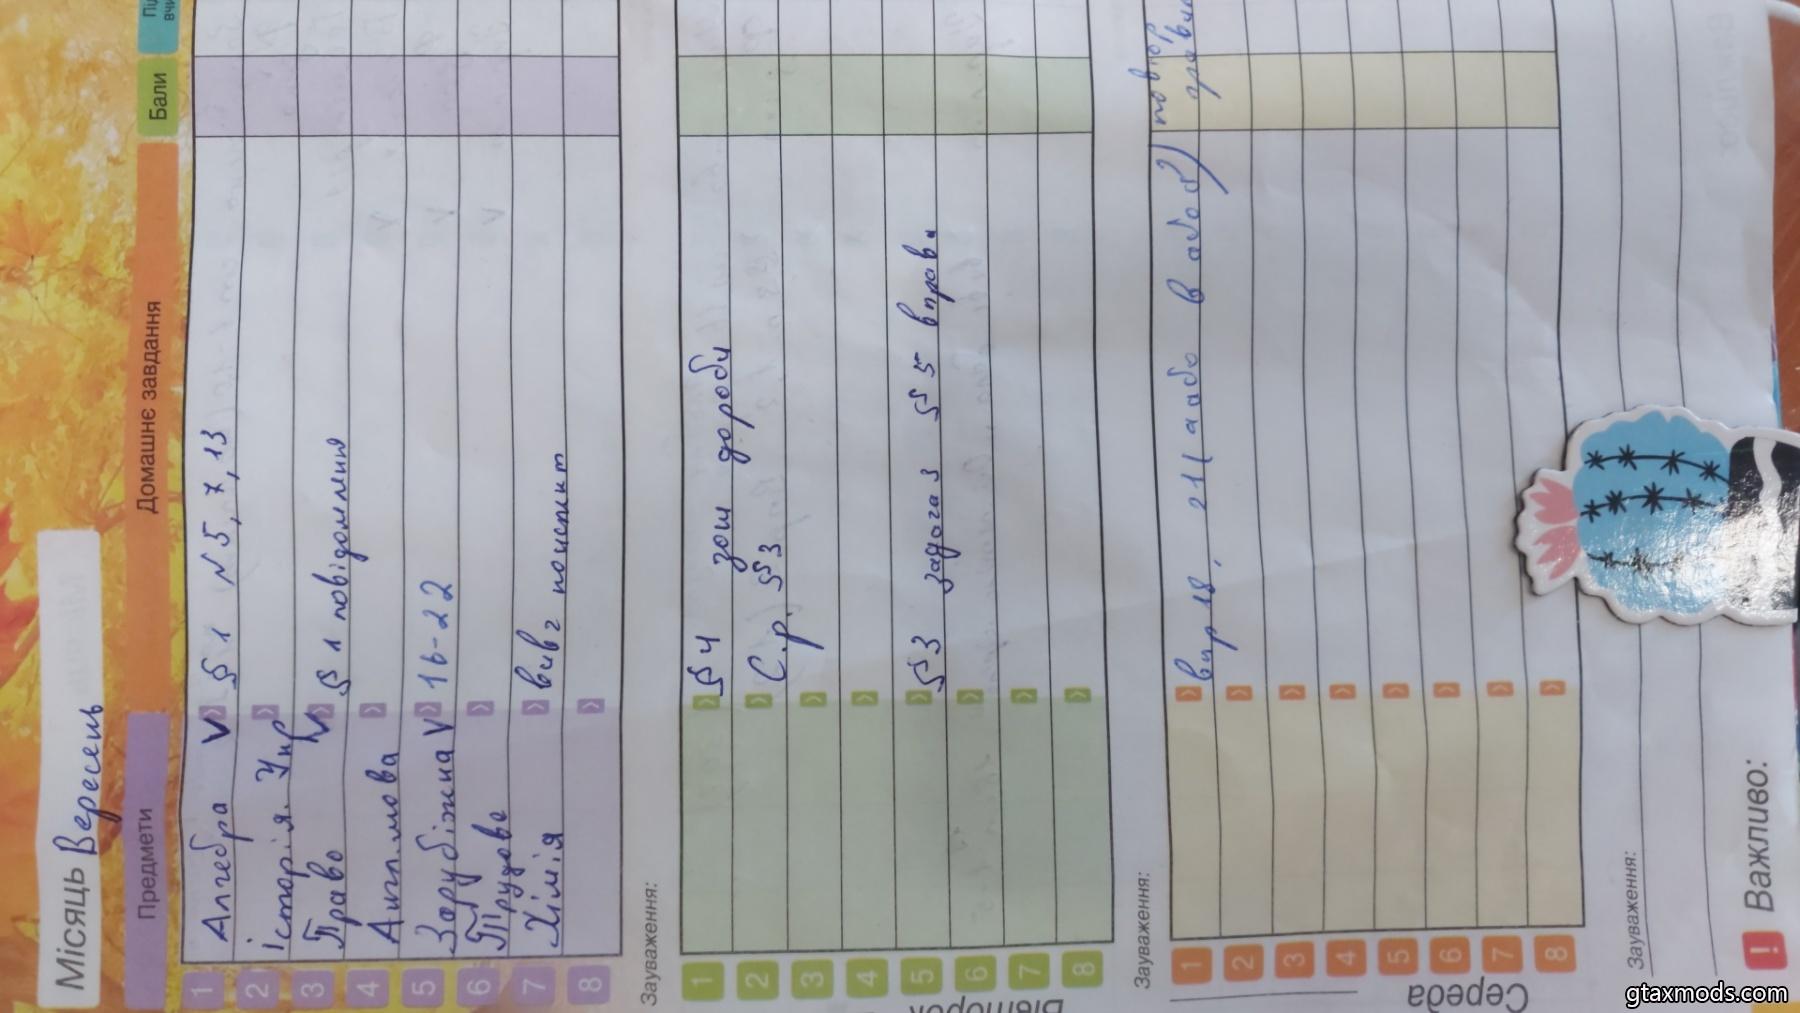 Місяць Вересень
Предмети Домашнє завдання Бали
1 Алгебра V § 1 №5, 7, 13
2 Історія. Укр
3 Право V § 1 повідомлення
4 Англ.мова
5 Зарубіжна V 16-22
6 Трудове
7 Хімія вивч конспект
8
Зауваження:
Вівторок
1 § 4 зош дороби
2 С.р. § 3
3
4
5 § 3 задача 3 § 5 вправи
6
7
8
Зауваження:
Середа
1 впр 18, 21 (а або в або б) повтор
правила
2
3
4
5
6
7
8
Зауваження:
! Важливо:
gtaxmods.com